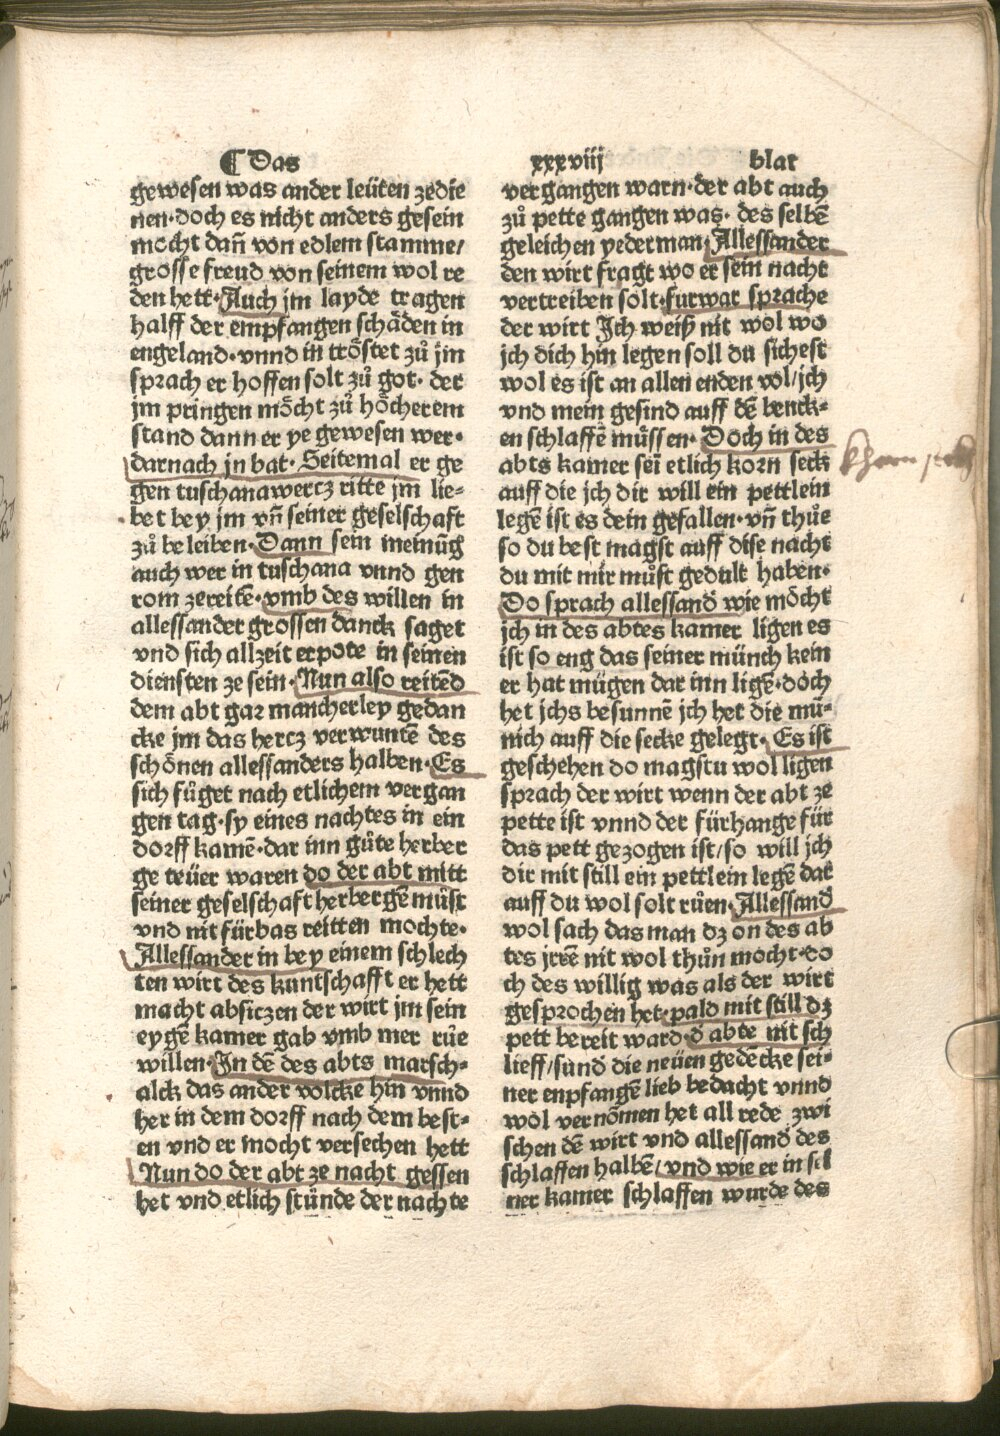 ¶ Das xxxviij blat
gewesen was ander leüten zedie
nen·doch es nicht anders gesein
mocht dañ von edlem stamme/
grosse freud von seinem wol re
den hett·Auch jm layde tragen
halff der empfangen schäden in
engeland·vnnd in tröstet zů jm
sprach er hoffen solt zů got· der
jm pringen möcht zů höcherem
stand dann er ye gewesen wer·
darnach jn bat· Seitemal er ge
gen tuschanawercz ritte jm lie⸗
bet bey jm vñ seiner geselschaft
zů beleiben·Dann sein meinũg
auch wer in tuschana vnnd gen
rom zereitẽ·vmb des willen in
allessander grossen danck saget
vnd sich allzeit erpote in seinen
diensten ze sein·Nun also reitẽd
dem abt gar mancherley gedan
cke jm das hercz verwuntẽ des
schönen allessanders halben·Es
sich fůget nach etlichem vergan
gen tag·sy eines nachtes in ein
dorff kamẽ·dar inn gůte herber
ge teüer waren do der abt mitt
seiner geselschaft herbergẽ můst
vnd nit fürbas reitten mochte·
Allessander in bey einem schlech
ten wirt des kuntschafft er hett
macht absiczen der wirt jm sein
eygẽ kamer gab vmb mer růe
willen·In dẽ des abts marsch⸗
alck das ander volcke hin vnnd
her in dem dorff nach dem best⸗
en vnd er mocht versechen hett
Nun do der abt ze nacht gessen
het vnd etlich stünde der nachte
vergangen warn·der abt auch
zů pette gangen was· des selbẽ
geleichen yederman·Allessander
den wirt fragt wo er sein nacht
vertreiben solt·furwar sprache
der wirt Ich weiß nit wol wo
jch dich hin legen soll du sichest
wol es ist an allen enden vol/jch
vnd mein gesind auff dẽ benck⸗
en schlaffẽ můssen· Doch in des
abts kamer sei etlich korn seck
auff die jch dir will ein pettlein
legẽ ist es dein gefallen·vñ thůe
so du best magst auff dise nacht
du mit mir můst gedult haben·
Do sprach allessand̃ wie möcht
jch in des abtes kamer ligen es
ist so eng das seiner münch kein
er hat mügen dar inn ligẽ·doch
het jchs besunnẽ jch het die mü⸗
nich auff die secke gelegt· Es ist
geschehen do magstu wol ligen
sprach der wirt wenn der abt ze
pette ist vnnd der fürhange für
das pett gezogen ist/so will jch
dir mit still ein pettlein legẽ dar
auff du wol solt rüen·Allessand̃
wol sach das man dz on des ab
tes jrrẽ nit wol thůn mocht·do
ch des willig was als der wirt
gesprochen het·pald mit still dz
pett bereit ward·d̃ abte nit sch
lieff/sund die neüen gedẽcke sei⸗
ner enpfangẽ lieb bedacht vnnd
wol vernõmen het all rede zwi
schen dẽ wirt vnd allessand̃ des
schlaffen halbẽ/vnd wie er in sei
ner kamer schlaffen wurde des